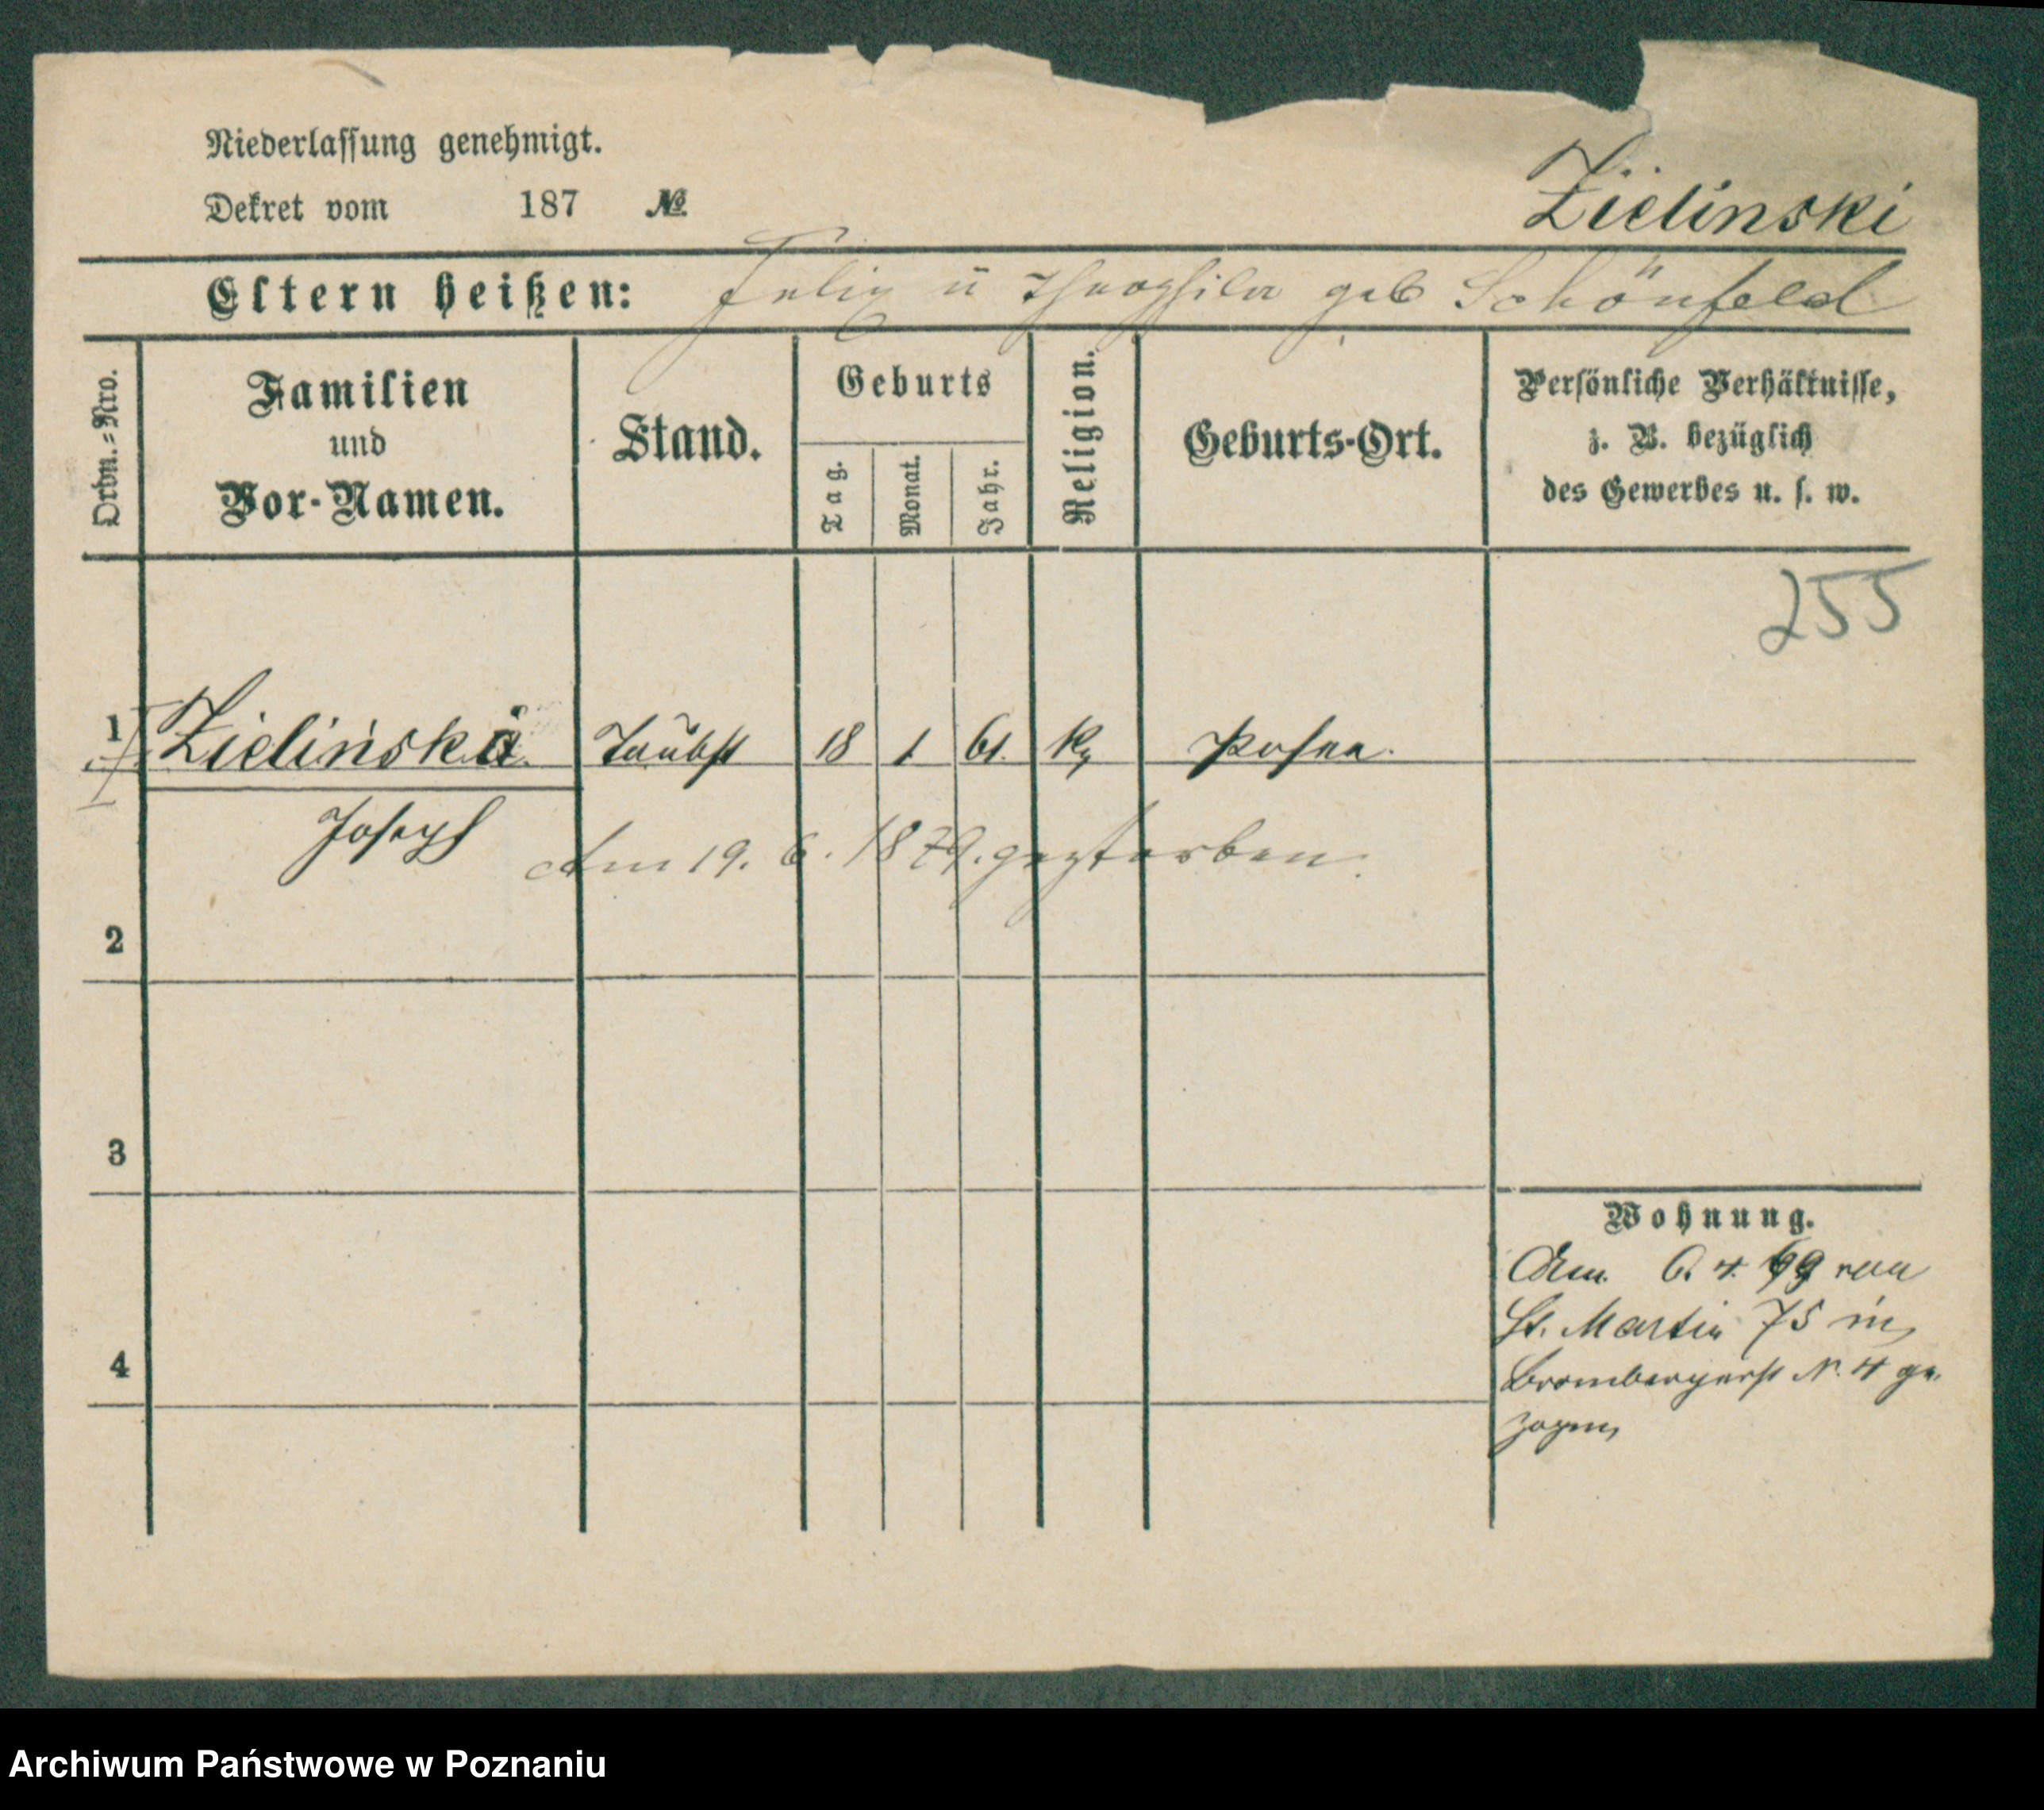 Niederlassung genehmigt.
Dekret vom 187 №
Zielinski
Eltern heißen: Felix u Theophila geb Schönfeld
Ordn.=Nro.
Familien
und
Vor-Namen.
Stand.
Geburts
Tag.
Monat.
Jahr.
Religion.
Geburts-Ort.
Persönliche Verhältnisse,
z. B. bezüglich
des Gewerbes u. s. w.
255
1 Zieliński Taubst 18 1 61. Posen.
Joseph
Am 19. 6. 1879. gestorben.
2
3
4
Wohnung.
Am 6. 4. 69 von
St. Martin 75 in
Brombergerst N. 4 ge
zogen
Archiwum Państwowe w Poznaniu